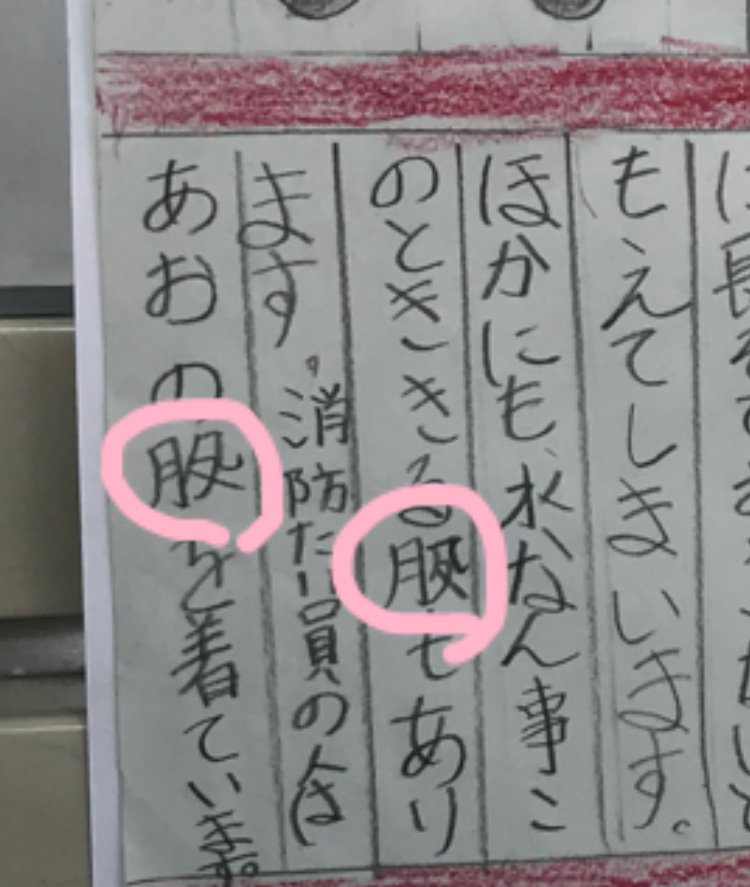 もえてしまいます。
ほかにも、水なん事こ
のときききる服もあり
ます。消防たい員の人は
あおの服を着ています。